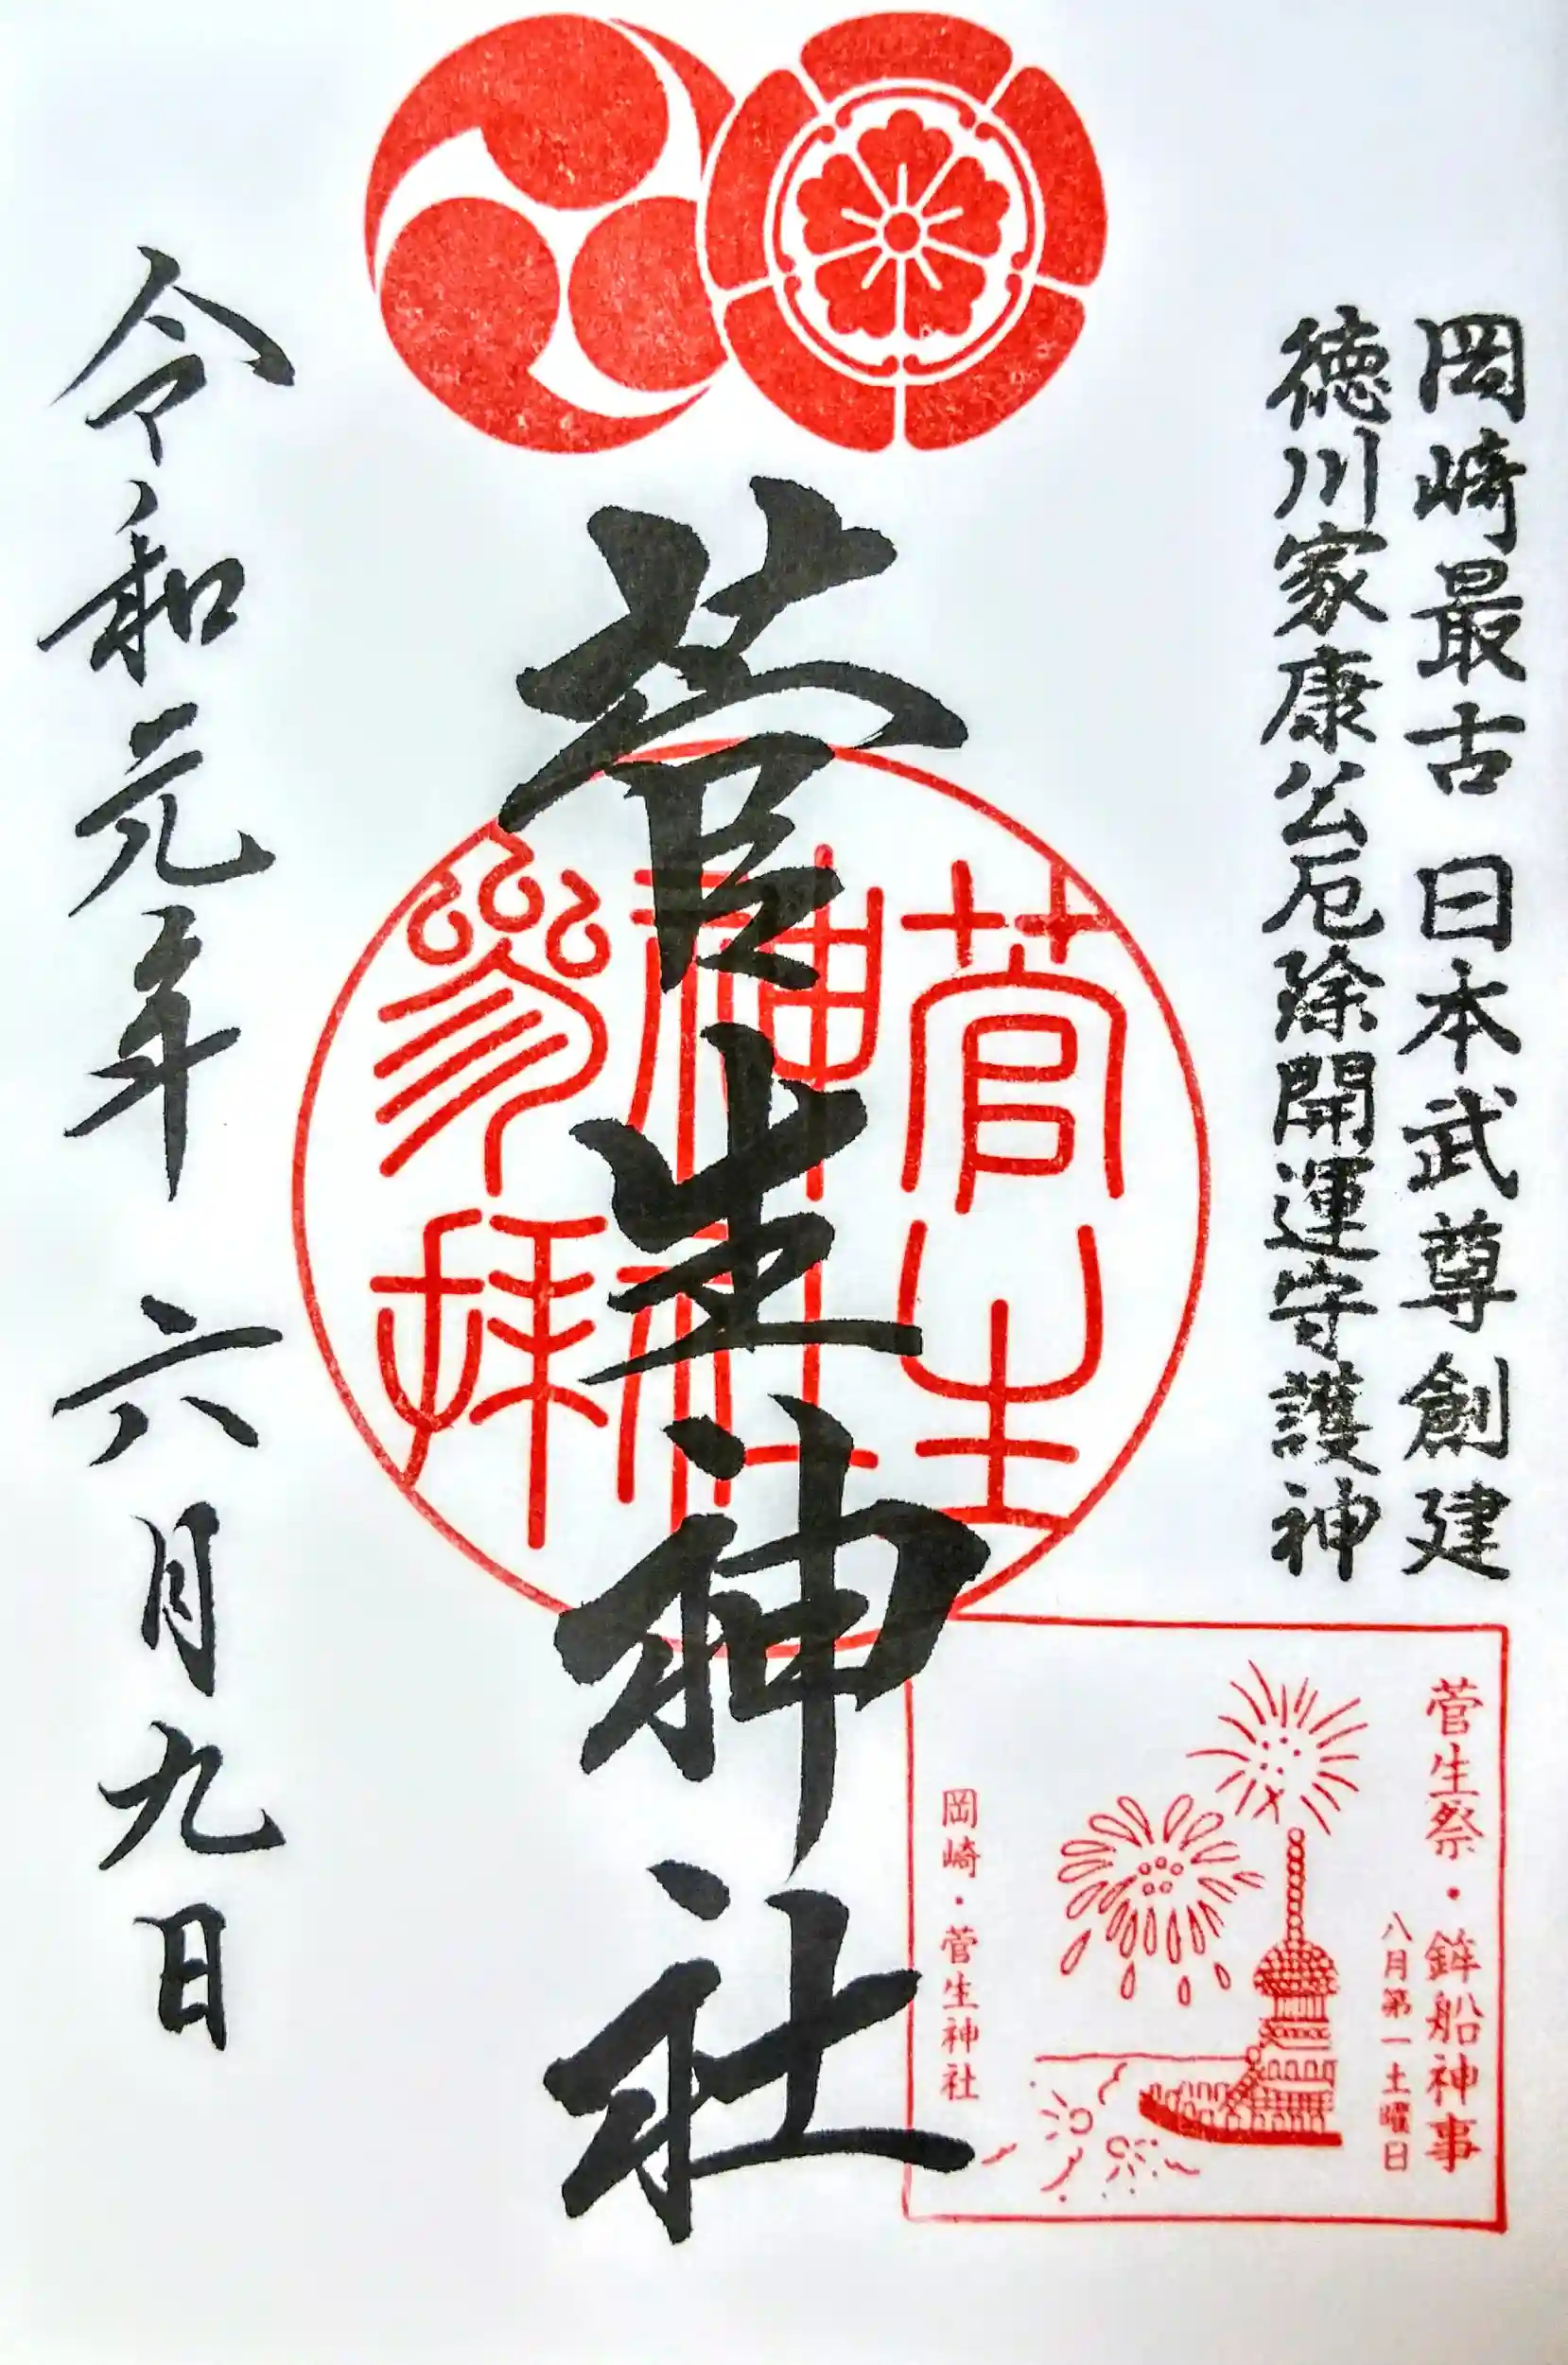 岡崎最古 日本武尊創建
徳川家康公厄除開運守護神
菅生神社
菅生
神社
參拝
令和元年 六月九日
菅生祭・鉾船神事
八月第一土曜日
岡崎・菅生神社